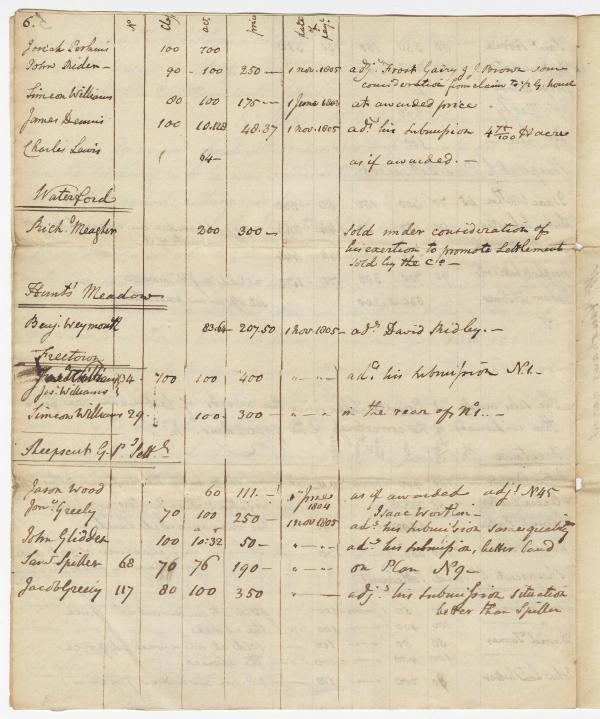 6.
No
Class
acr
price
date of paymt
Josiah Perkins 100 100
John Rider 90 - 100 250 - 1 nov. 1805 adjg Frost Gairy & J. Brown some
consideration for claim to
Simeon Williams 80 100 175 - 1 June 1803 at awarded price.
James Dennis 100 10.128 48.37 1 nov. 1805 adjg his submission 4 75/100 acres
Charles Lewis 64 - as if awarded. -
Waterford
Richd Meagher 200 300 - sold under consideration of
his exertion to promote settlement
sold by the Co -
Hunts Meadow
Benj. Weymouth 83.64 - 207.50 1 Nov 1805 - adjg David Ridley. -
Freetown
34 100 100 400 " - " - adjg his submission N. 1 -
Jos. Williams
Simeon Williams 29. 100 - 300 - " - " - in the rear of No 1. -
Sheepscut G. P. Settt
Jason Wood 60 111. - June 1804 as if awarded adjg N 45
Isaac Worthin -
Jona Greely 70 100 250 - 1 nov 1805 adjg his submission same quality
John Glidden 100 10.32 50 - " - " - adjg his submission, better land
Saml Spiller 68 76 76 190 - " - " - on Plan N. 9 -
Jacob Greely 117 80 100 350 " - adjg his submission situation
better than Spiller